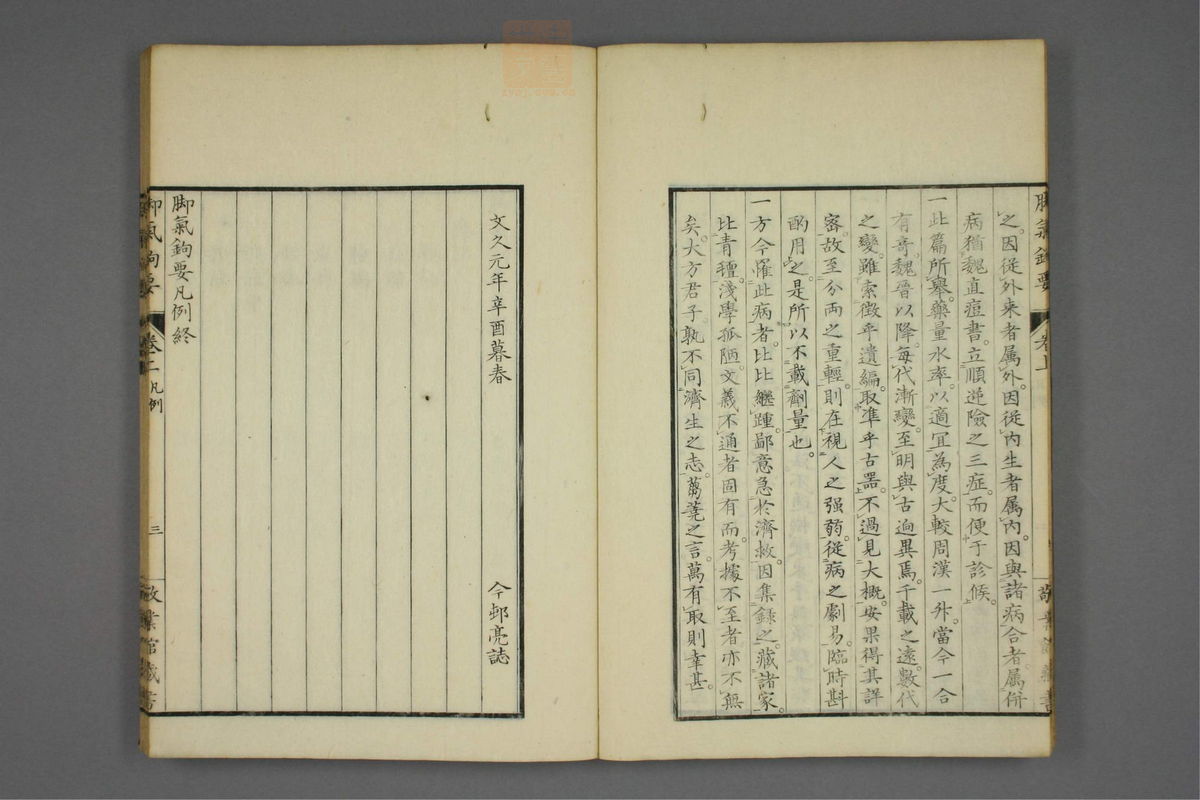 脚氣鉤要
卷上
敬業館藏書
之因從外来者属外因從内生者属内因與諸病合者属併
病猶魏直痘書立順逆險之三症而便于診候
一此篇所舉藥量水率以適宜為度大較周漢一升當今一合
有奇魏晋以降每代漸變至明與古逈異焉千載之遠數代
之變雖索徴乎遺編取準乎古器不過見大概安果得其詳
審故至分两之重輕則在視人之强弱從病之劇易臨時斟
酌用之是所以不載劑量也
一方今罹此病者比比繼踵鄙意急於濟救因集録之藏諸家
比青氊淺學孤陋文義不通者固有而考據不至者亦不無
矣大方君子孰不同濟生之志蒭蕘之言萬有取則幸甚
文久元年辛酉暮春
今邨亮誌
脚氣鉤要凡例終
脚氣鉤要
卷上 凡例
三
敬業館藏書